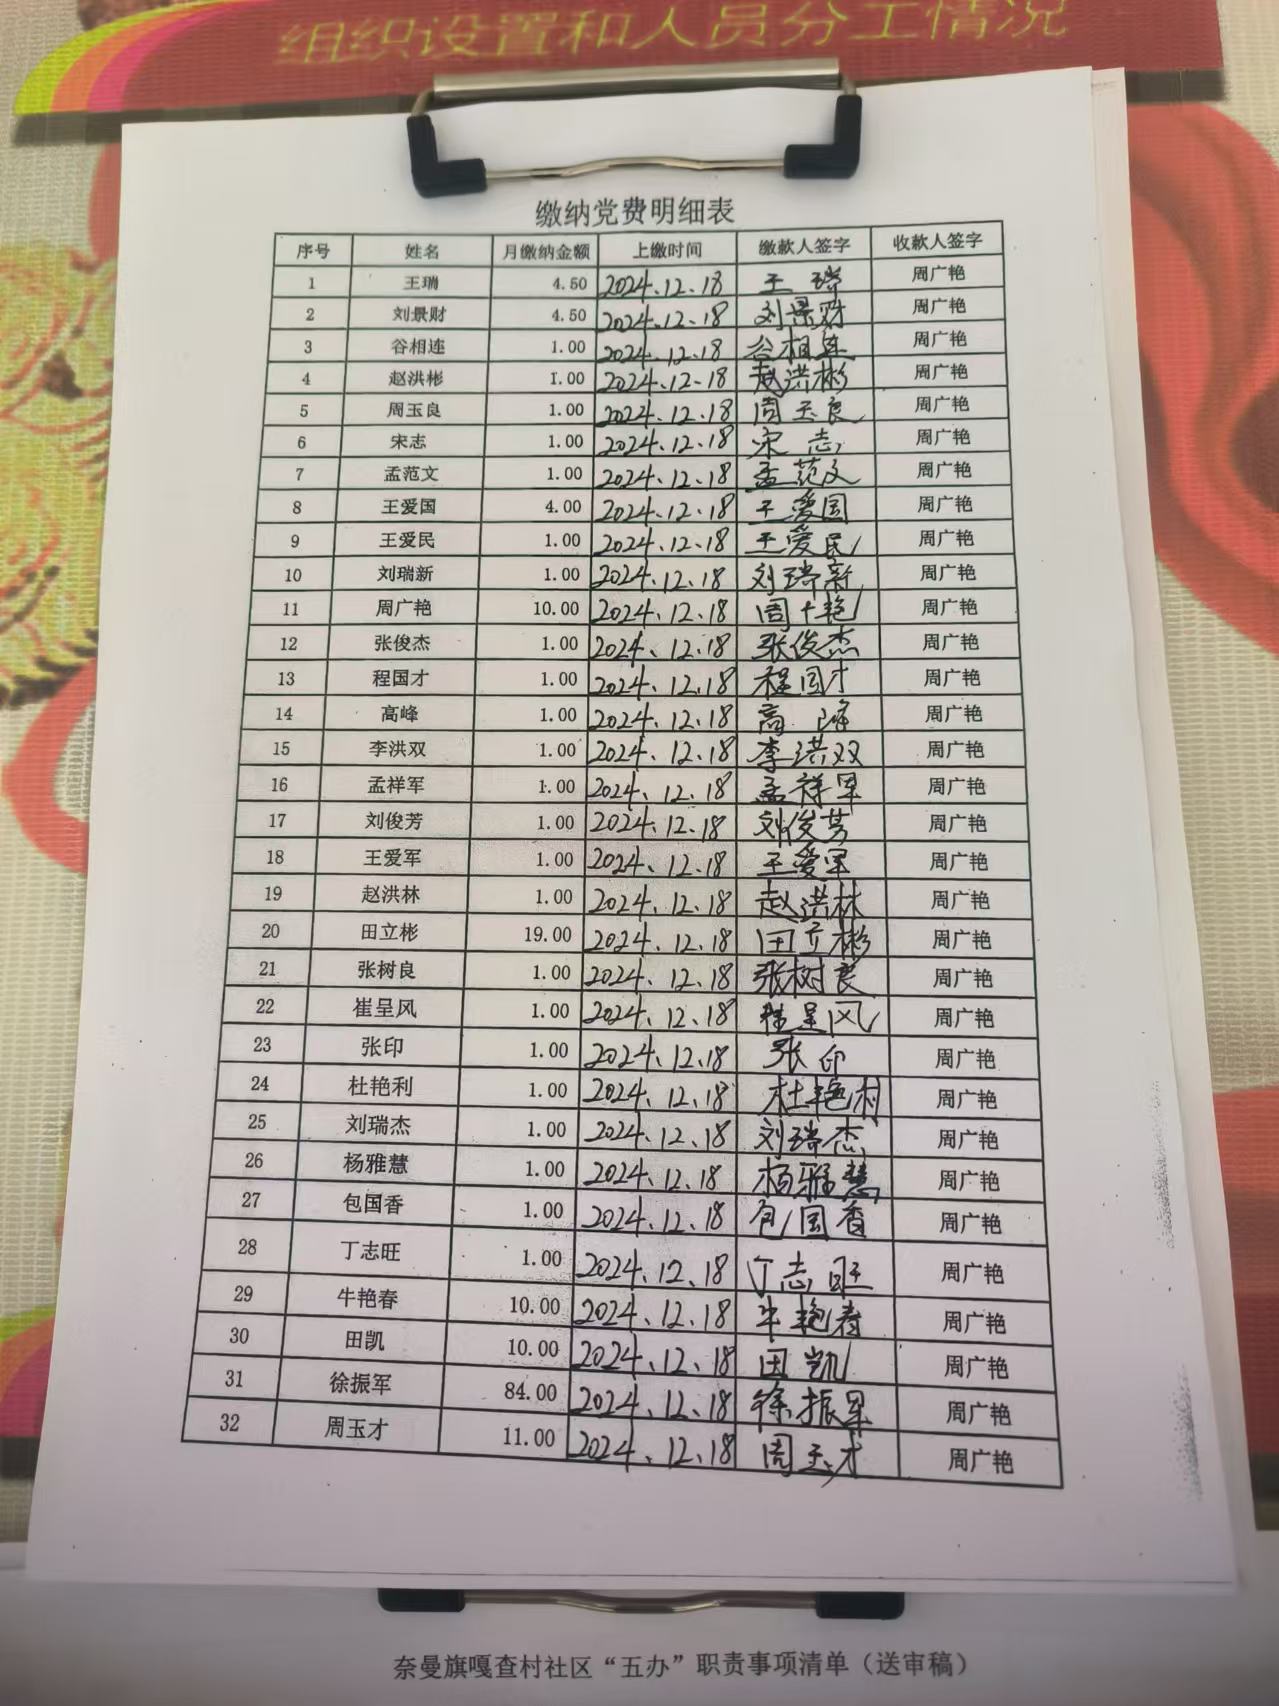 组织设置和人员分工情况
缴纳党费明细表
序号 姓名 月缴纳金额 上缴时间 缴款人签字 收款人签字
1 王瑞 4.50 2024.12.18 王瑞 周广艳
2 刘景财 4.50 2024.12.18 刘景财 周广艳
3 谷相连 1.00 2024.12.18 谷相连 周广艳
4 赵洪彬 1.00 2024.12.18 赵洪彬 周广艳
5 周玉良 1.00 2024.12.18 周玉良 周广艳
6 宋志 1.00 2024.12.18 宋志 周广艳
7 孟范文 1.00 2024.12.18 孟范文 周广艳
8 王爱国 4.00 2024.12.18 王爱国 周广艳
9 王爱民 1.00 2024.12.18 王爱民 周广艳
10 刘瑞新 1.00 2024.12.18 刘瑞新 周广艳
11 周广艳 10.00 2024.12.18 周广艳 周广艳
12 张俊杰 1.00 2024.12.18 张俊杰 周广艳
13 程国才 1.00 2024.12.18 程国才 周广艳
14 高峰 1.00 2024.12.18 高峰 周广艳
15 李洪双 1.00 2024.12.18 李洪双 周广艳
16 孟祥军 1.00 2024.12.18 孟祥军 周广艳
17 刘俊芳 1.00 2024.12.18 刘俊芳 周广艳
18 王爱军 1.00 2024.12.18 王爱军 周广艳
19 赵洪林 1.00 2024.12.18 赵洪林 周广艳
20 田立彬 19.00 2024.12.18 田立彬 周广艳
21 张树良 1.00 2024.12.18 张树良 周广艳
22 崔呈风 1.00 2024.12.18 崔呈风 周广艳
23 张印 1.00 2024.12.18 张印 周广艳
24 杜艳利 1.00 2024.12.18 杜艳利 周广艳
25 刘瑞杰 1.00 2024.12.18 刘瑞杰 周广艳
26 杨雅慧 1.00 2024.12.18 杨雅慧 周广艳
27 包国香 1.00 2024.12.18 包国香 周广艳
28 丁志旺 1.00 2024.12.18 丁志旺 周广艳
29 牛艳春 10.00 2024.12.18 牛艳春 周广艳
30 田凯 10.00 2024.12.18 田凯 周广艳
31 徐振军 84.00 2024.12.18 徐振军 周广艳
32 周玉才 11.00 2024.12.18 周玉才 周广艳
奈曼旗嘎查村社区“五办”职责事项清单（送审稿）